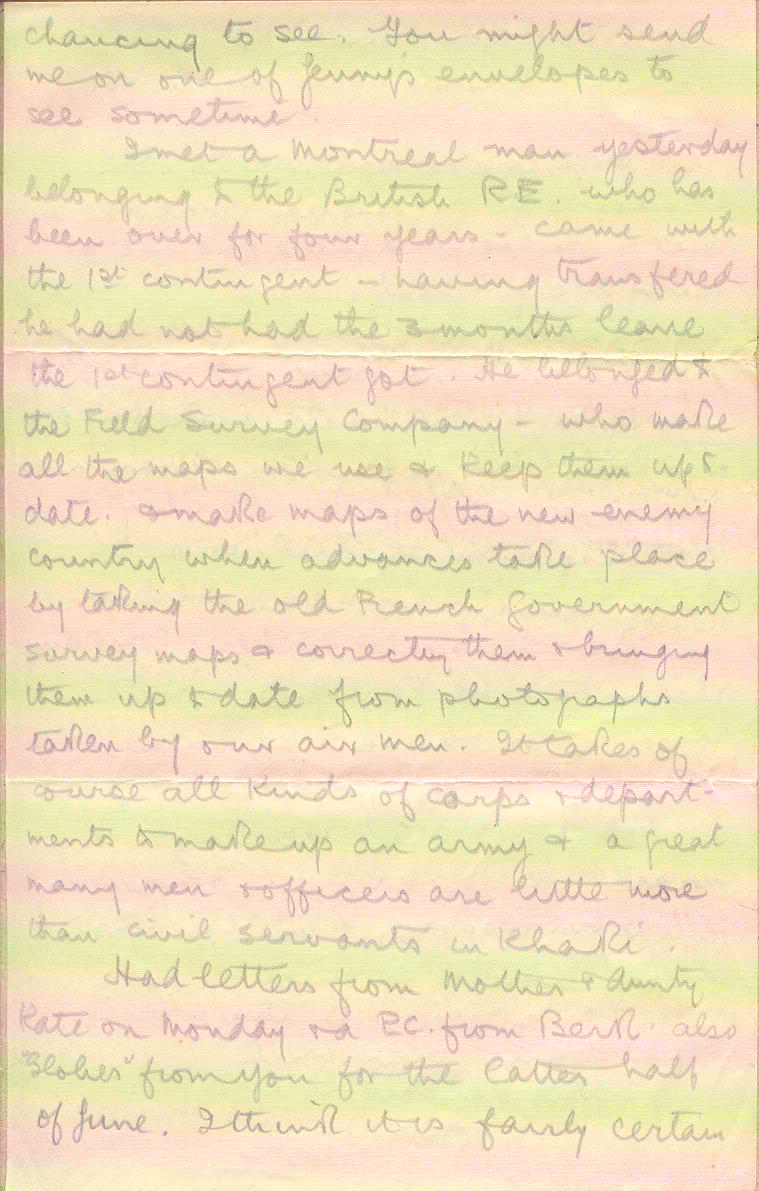 chancing to see. You might send
me on one of Jenny's envelopes to
see sometime.
I met a Montreal man yesterday
belonging to the British R.E. who has
been over for four years - came with
the 1st contingent - having transfered
he had not had the 3 months leave
the 1st contingent got. He belonged to
the Field Survey Company - who make
all the maps we use & keep them up to
date. & make maps of the new enemy
country when advances take place
by taking the old French government
survey maps & correcting them & bringing
them up to date from photographs
taken by our air men. It takes of
course all kinds of corps & depart-
ments to make up an army & a great
many men & officers are little more
than civil servants in Khaki.
Had letters from Mother & Aunty
Kate on Monday & a P.C. from Berk. also
"Globes" from you for the latter half
of June. I think it is fairly certain